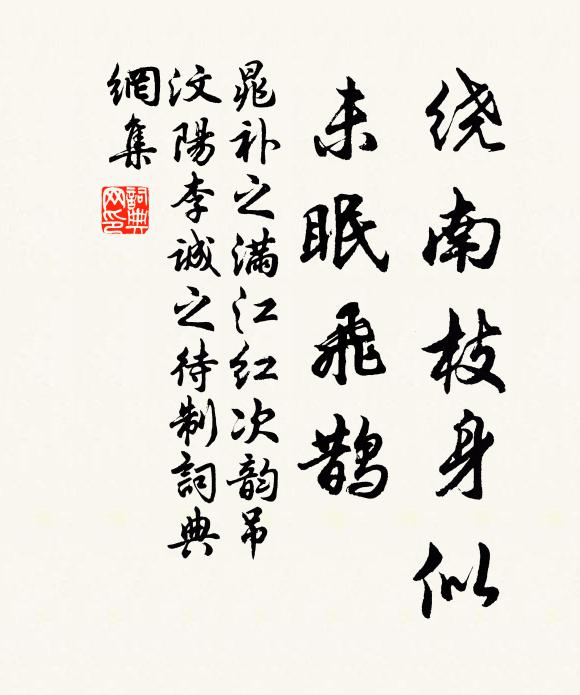 绕南枝身似
未眠飛鹊
晁补之满江红次韵吊
汶陽李诚之待制詞典
網集
詞典网印